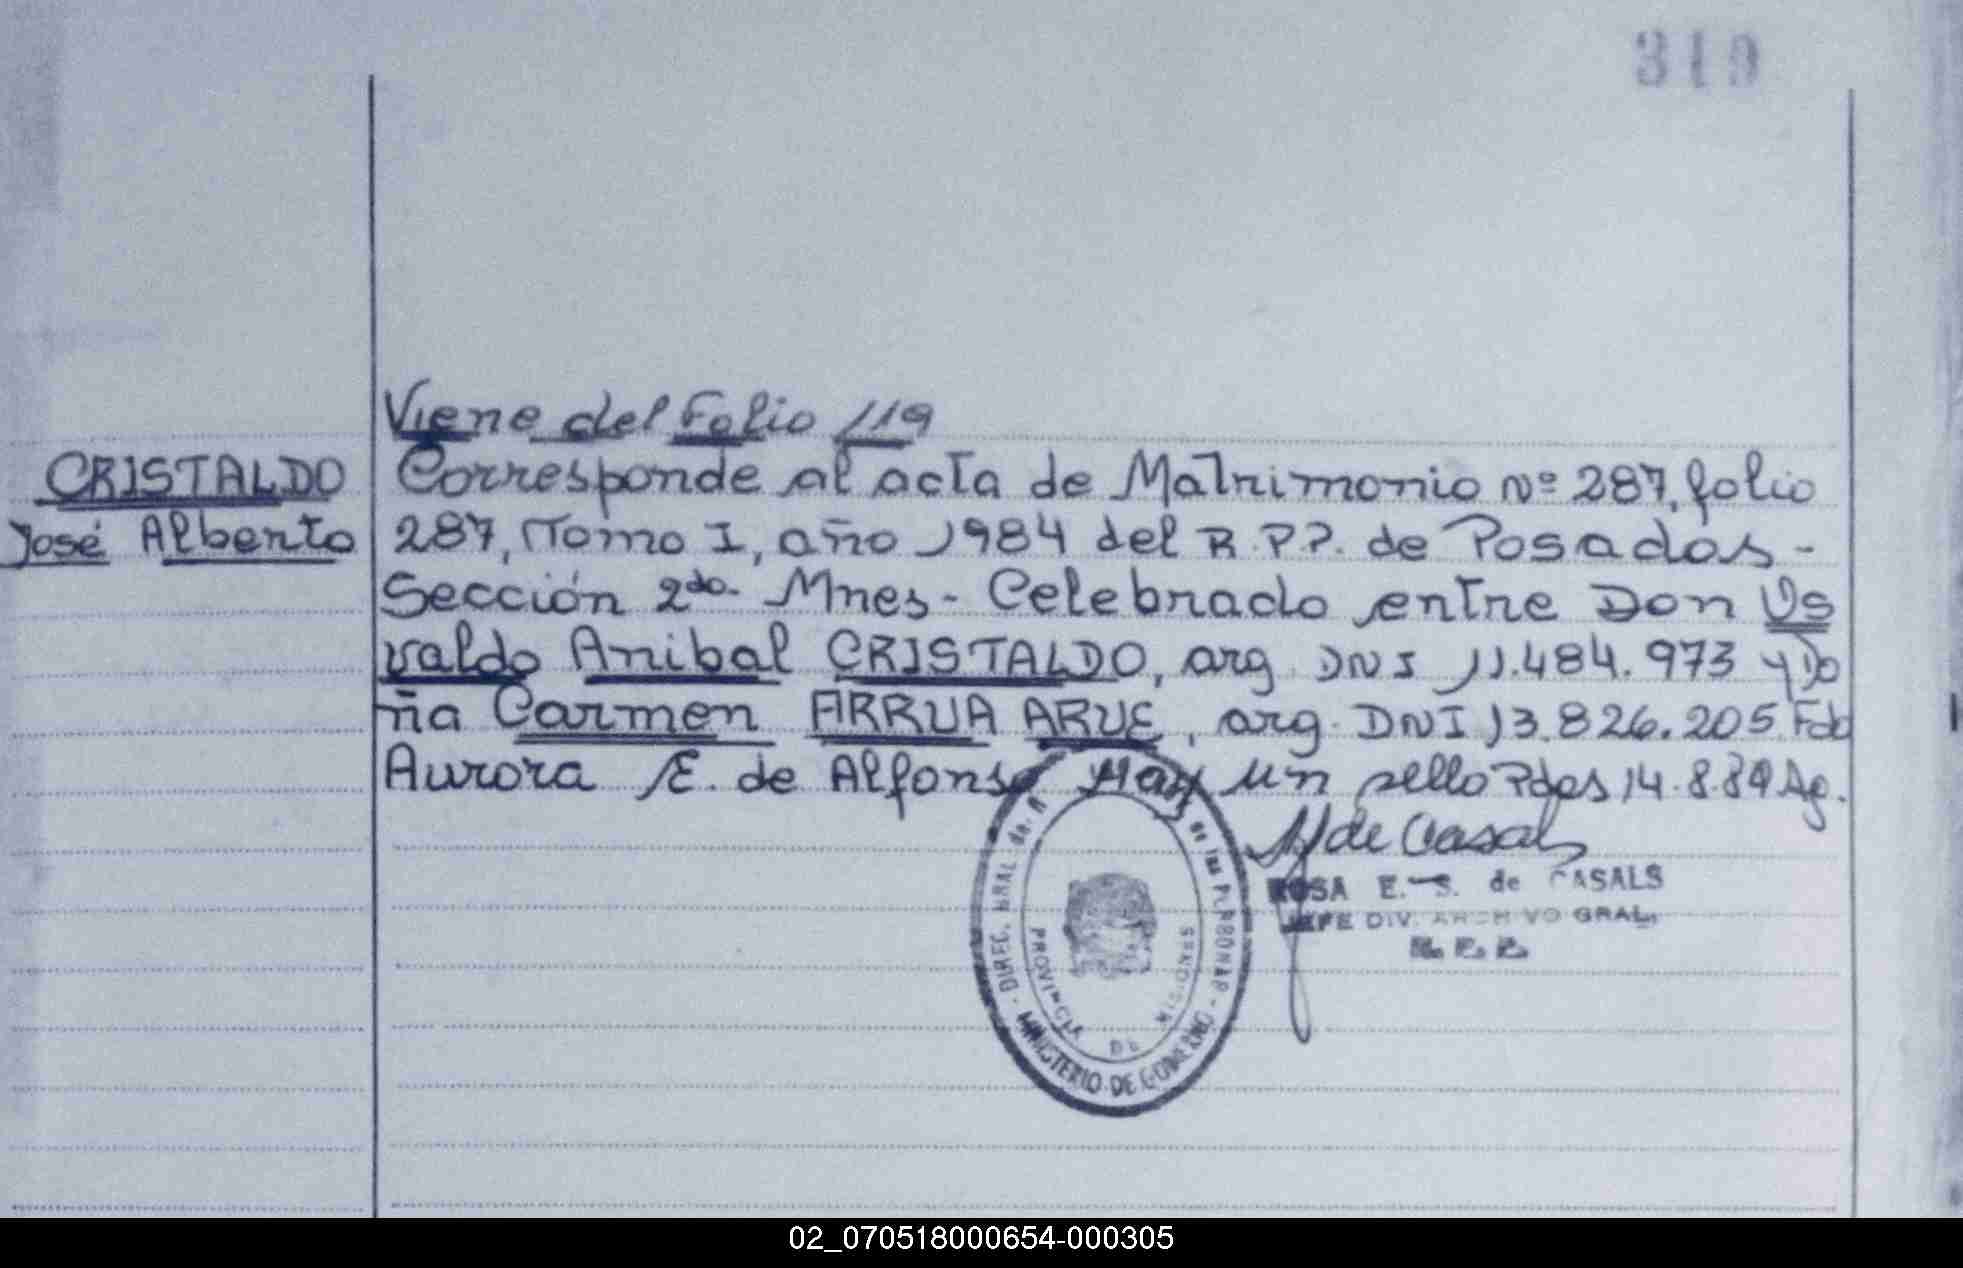 319
Viene del Folio 119
CRISTALDO
José Alberto
Corresponde al acta de Matrimonio Nº 287, folio
287, Tomo I, año 1984 del R.P.P. de Posadas -
Sección 2da. Mnes - Celebrado entre Don Us
valdo Anibal CRISTALDO, arg. DNI 11.484.973 y Do
ña Carmen ARRUA ARUE, arg. DNI 13.826.205. Fdo
Aurora E. de Alfonso Hay un sello Pdas 14.8.84 Ag.
de Casals
ROSA E. S. de CASALS
JEFE DIV. ARCHIVO GRAL.
DIREC. GRAL de de las PERSONAS
PROVINCIA DE MISIONES
MINISTERIO DE GOBIERNO
02_070518000654-000305